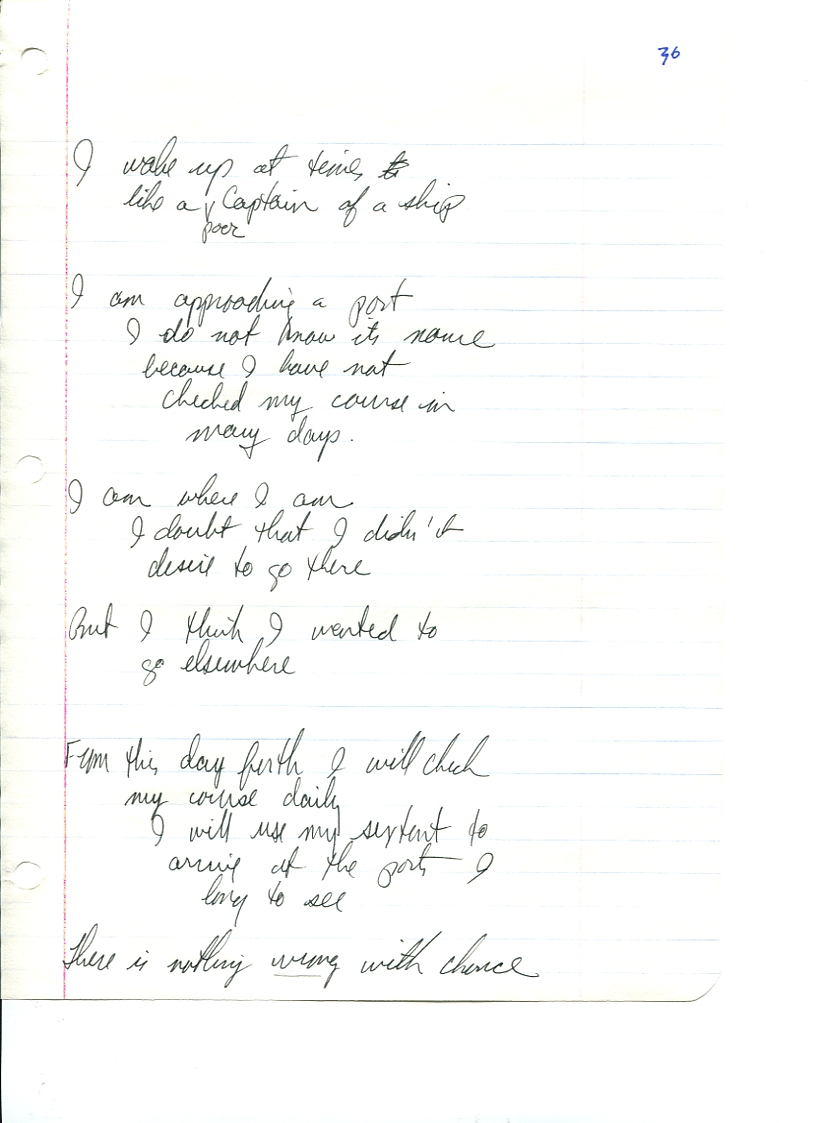 36
I wake up at times
like a poor Captain of a ship
I am approaching a port
I do not know its name
because I have not
checked my course in
many days.
I am where I am
I doubt that I didn't
desire to go there
But I think I wanted to
go elsewhere
From this day forth I will check
my course daily
I will use my sextent to
arrive at the ports I
long to see
There is nothing wrong with chance